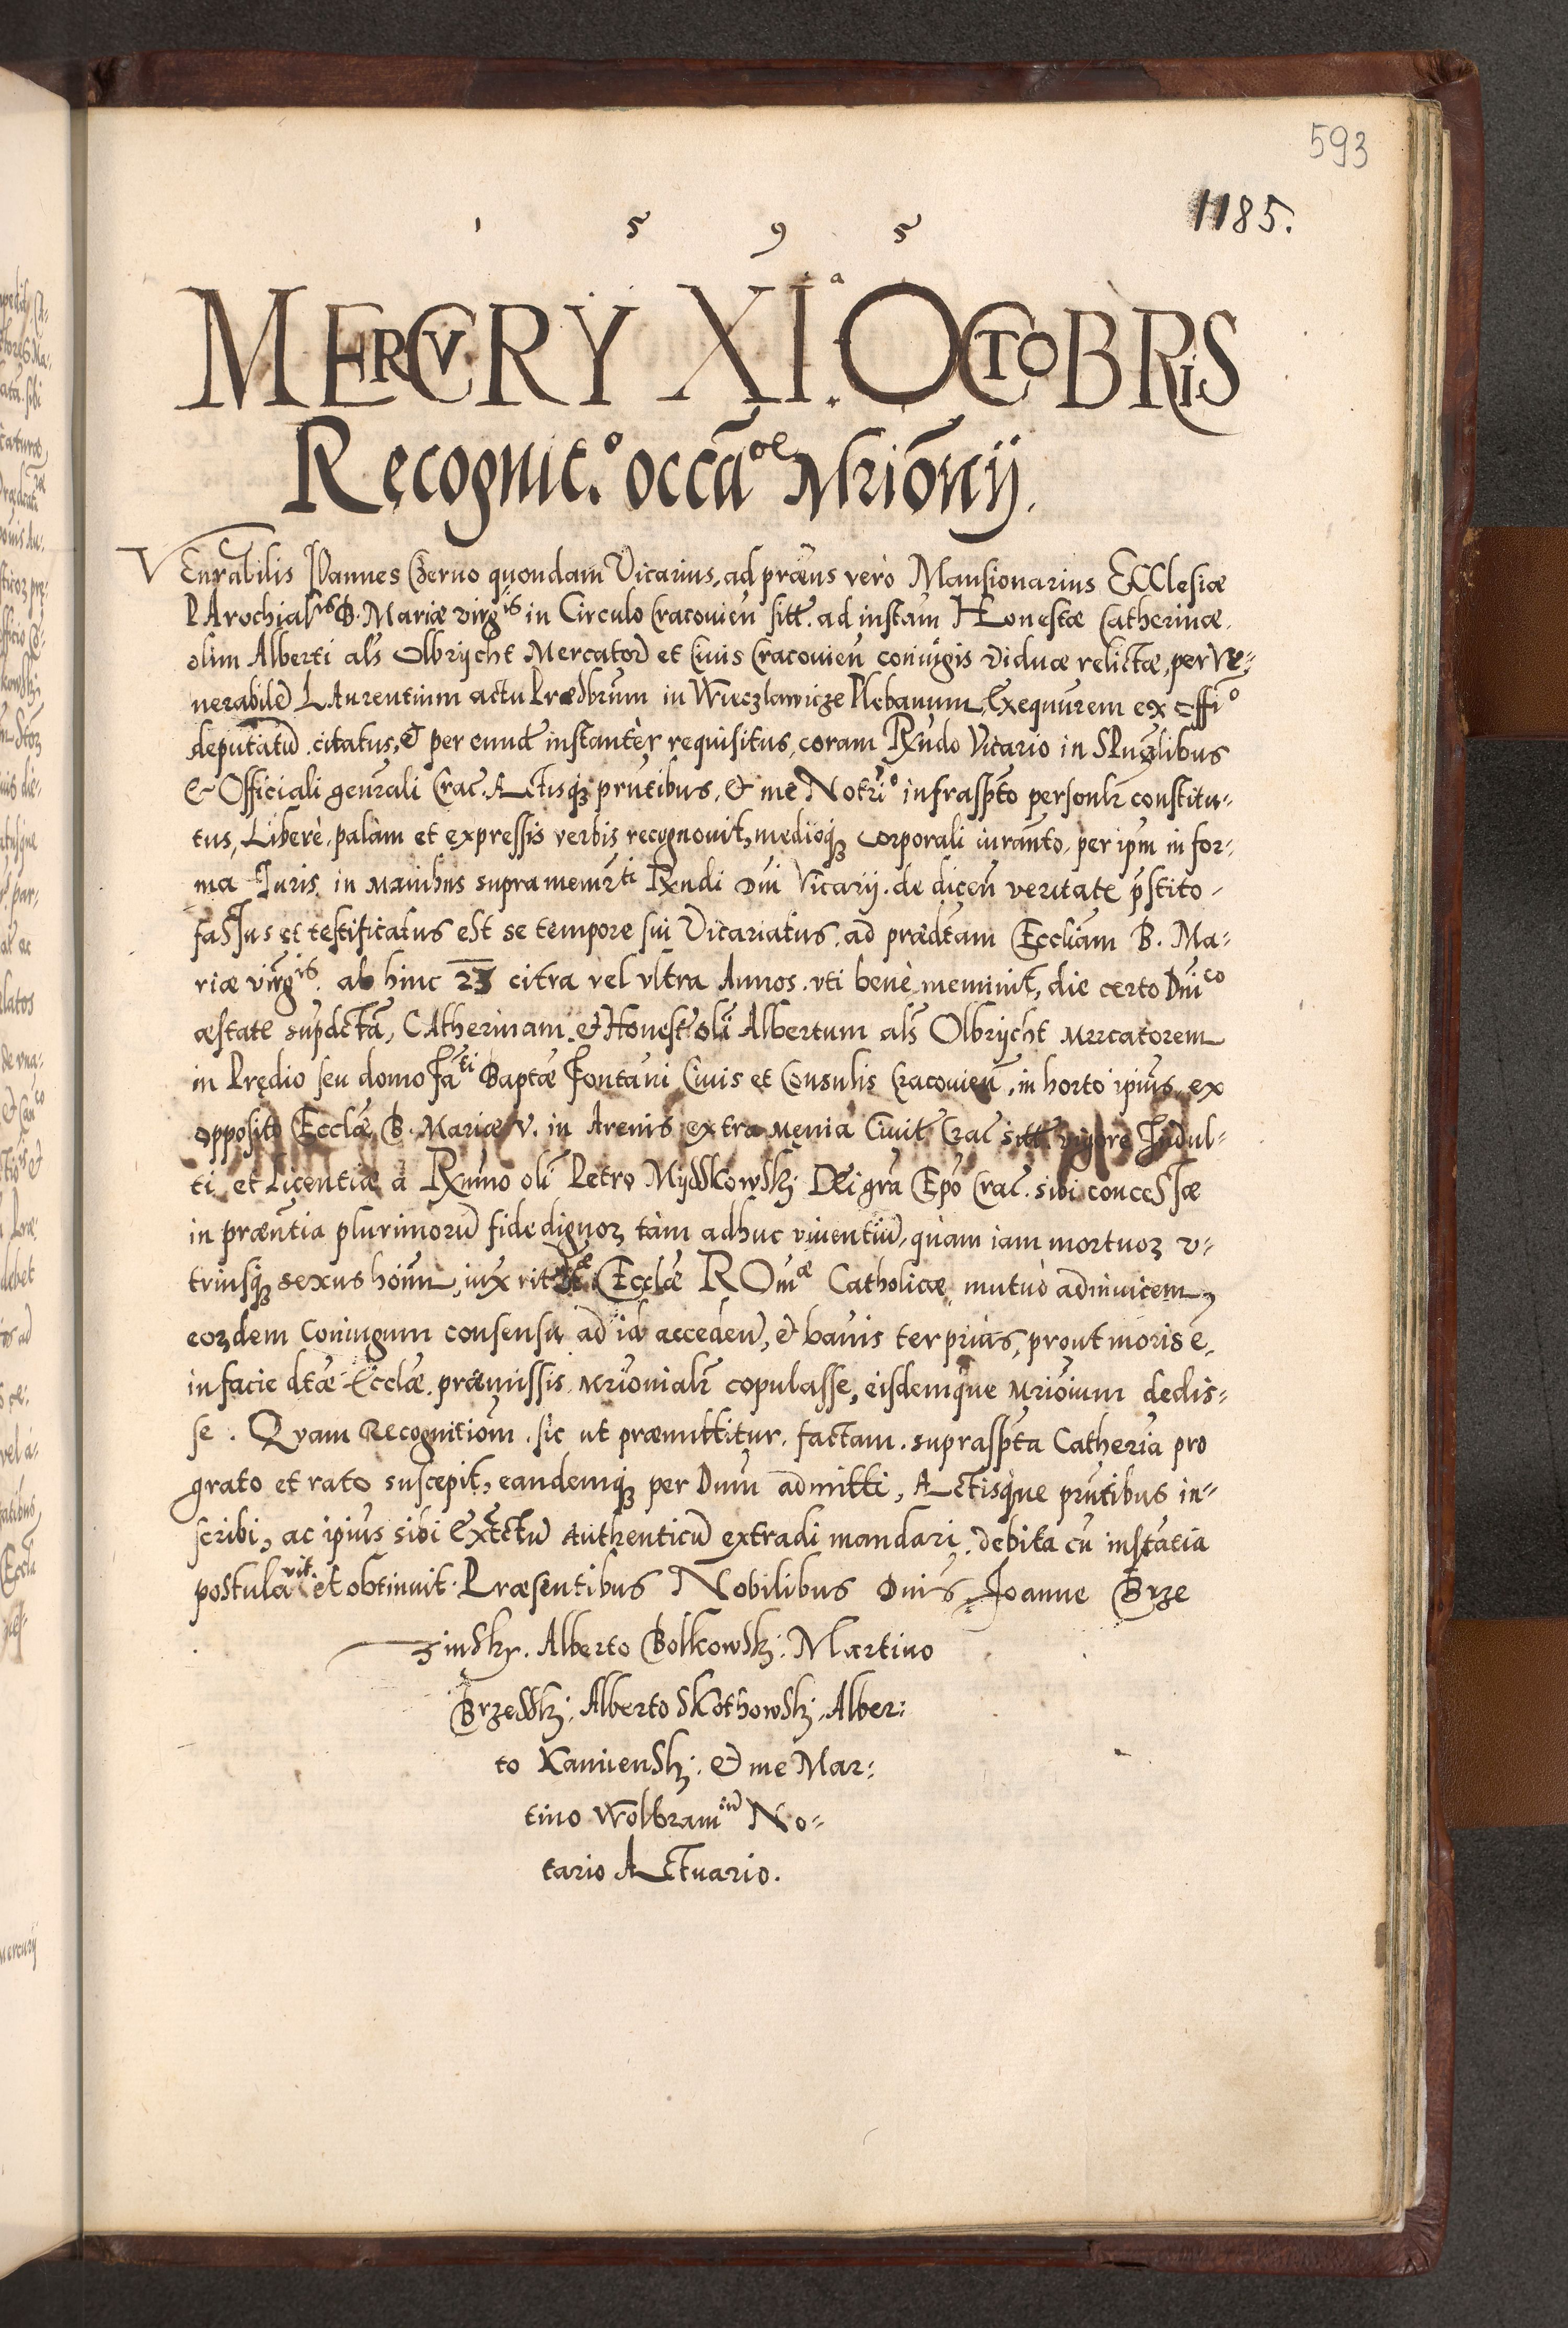 593
1185.
1 5 9 5
MERCVRY XIa. OCTOBRIS
Recognit.º occãõe Mriõnij.
VEnrabilis IOannes Czerno quondam Vicarius, ad præns verò Mansionarius ECClesiæ
PArochialris B. Mariæ virgịs in Circulo Cracouieñ sitt. ad instam Honestæ Catherinæ
olim Alberti als Olbrycht Mercator et Ciuis Cracouień coniugis viduæ relictæ, per Ve=
nerabile LAurentium actu Præsbrum in Wieczlawicze Plebanum, Exequutem ex offio
deputatũ citatus, & per eund instanter requisitus, coram Rndo Vicario in SPualibus
& Officiali genrali Crac. Actisq; prntibus, & me Notrio infraspto personlr constitu=
tus, Liberè, palàm et expressis verbis recognouit, medioq; corporali iuranto, per ipm in for=
ma Iuris, in manibus supramemrti Rndi Dni Vicarij. de diceñ veritate pstito
faSsus et testificatus est se tempore sui Vicariatus, ad prædtam Eccliam B. Ma=
riæ virgịs. ab hinc 23 citra vel vltra Annos. vti benè meminit, die certo Dnico
æstate supdctã, CAtherinam & Honest oli Albertum als Olbrycht Mercatorem
in Prędio seu domo Fati Baptæ Fontani Ciuis et Consulis Cracouień, in horto ipius ex
opposito Ecclæ B. Mariæ V. in Arenis extra Męnia Ciuit Crac sitt vigore Indul=
ti et Licentiæ a Rxmo oli Petro Mysskowskj DEi gra Epo Crac. sibi conceSsæ
in præntia plurimorũ fide dignoꝝ tàm adhuc viuentiũ, quàm iam mortuoꝝ v=
triusq; sexus hoim, iux rit Ecclæ ROmæ Catholicæ mutuò adinuicem,
eoꝝdem Coniugum consensu ad id acceden, & banis ter prius, prout moris ẽ,
in facie dtæ Ecclæ præmissis, mrionialr copulasse, eisdemque Mrioium dedis=
se. Qvam Recognitiom. sic ut præmittitur. factam. supraspta Catheria pro
grato et rato suscepit, eandemq; per Dnm admitti, Actisque prntibus in=
scribi, ac ipius sibi Extctũ Authenticũ extradi mandari, debita cũ instãtia
postulavit et obtinuit. Præsentibus Nobilibus Dnis, Joanne Brze
zinsky. Alberto Bolkowskj. Martino
Brzesskj. Alberto Skothowskj, Alber:
to Kamienskj. & me Mar:
tino Wolbram No=
tario Actuario.